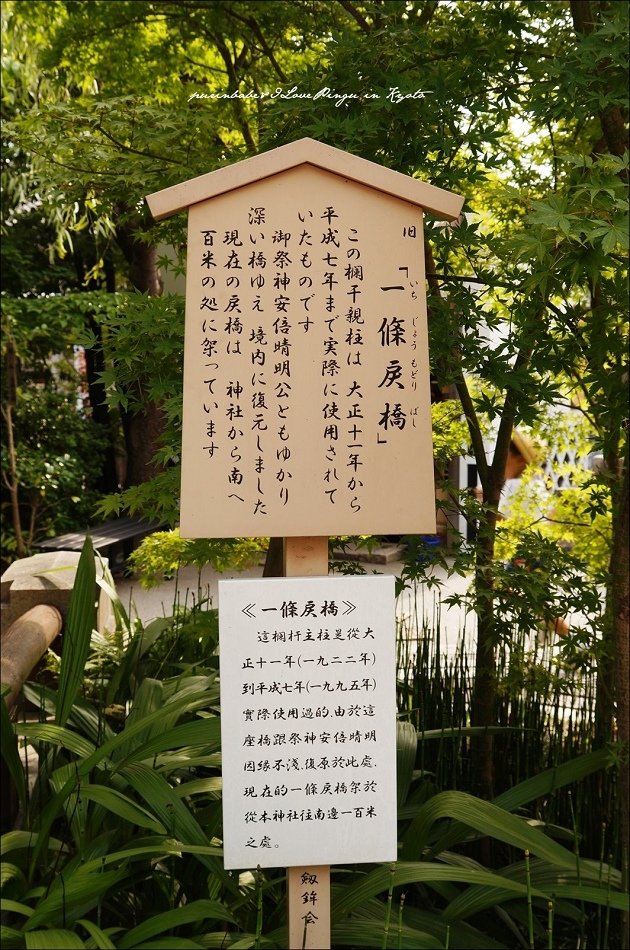 purinbabe§I Love Pingu in Kyoto
旧「一條戻橋」
いち じょう もどり ばし
この欄干親柱は 大正十一年から
平成七年まで実際に使用されて
いたものです
御祭神安倍晴明公ともゆかり
深い橋ゆえ 境内に復元しました
現在の戻橋は 神社から南へ
百米の処に架っています
≪一條戻橋≫
這欄杆主柱是從大
正十一年(一九二二年)
到平成七年(一九九五年)
實際使用過的.由於這
座橋跟祭神安倍晴明
因緣不淺.復原於此處.
現在的一條戻橋架於
從本神社往南邊一百米
之處。
剱鉾会